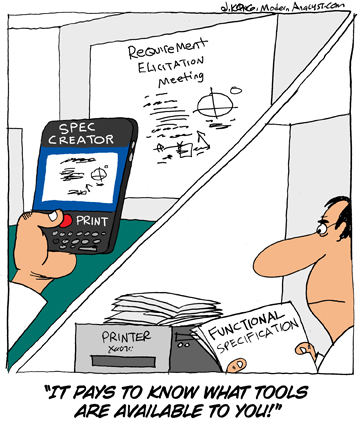 J.KONG, ModernAnalyst.com
Requirement
Elicitation
Meeting
SPEC
CREATOR
PRINT
PRINTER
FUNCTIONAL
SPECIFICATION
"IT PAYS TO KNOW WHAT TOOLS
ARE AVAILABLE TO YOU!"